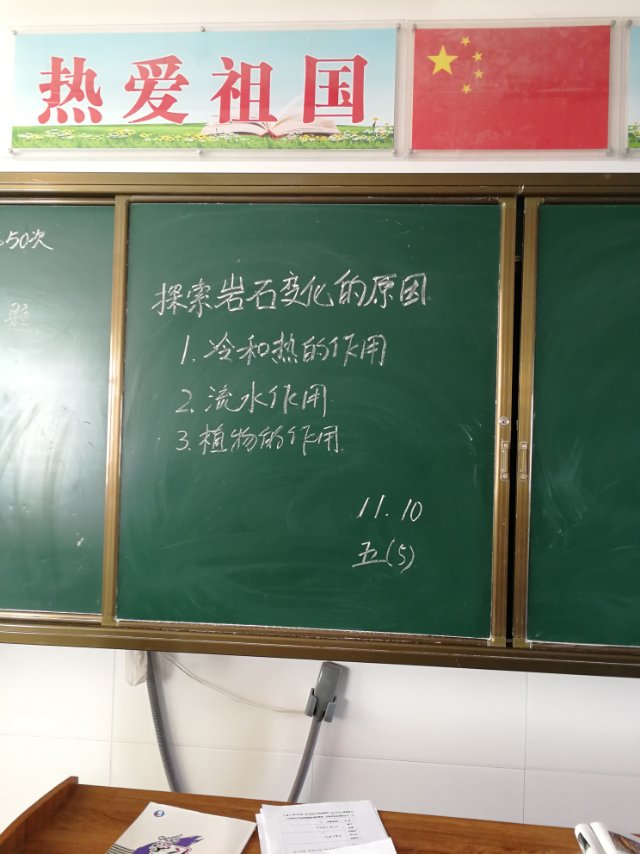 热爱祖国
50次
探索岩石变化的原因
1.冷和热的作用
2.流水作用
3.植物的作用
11.10
五(5)